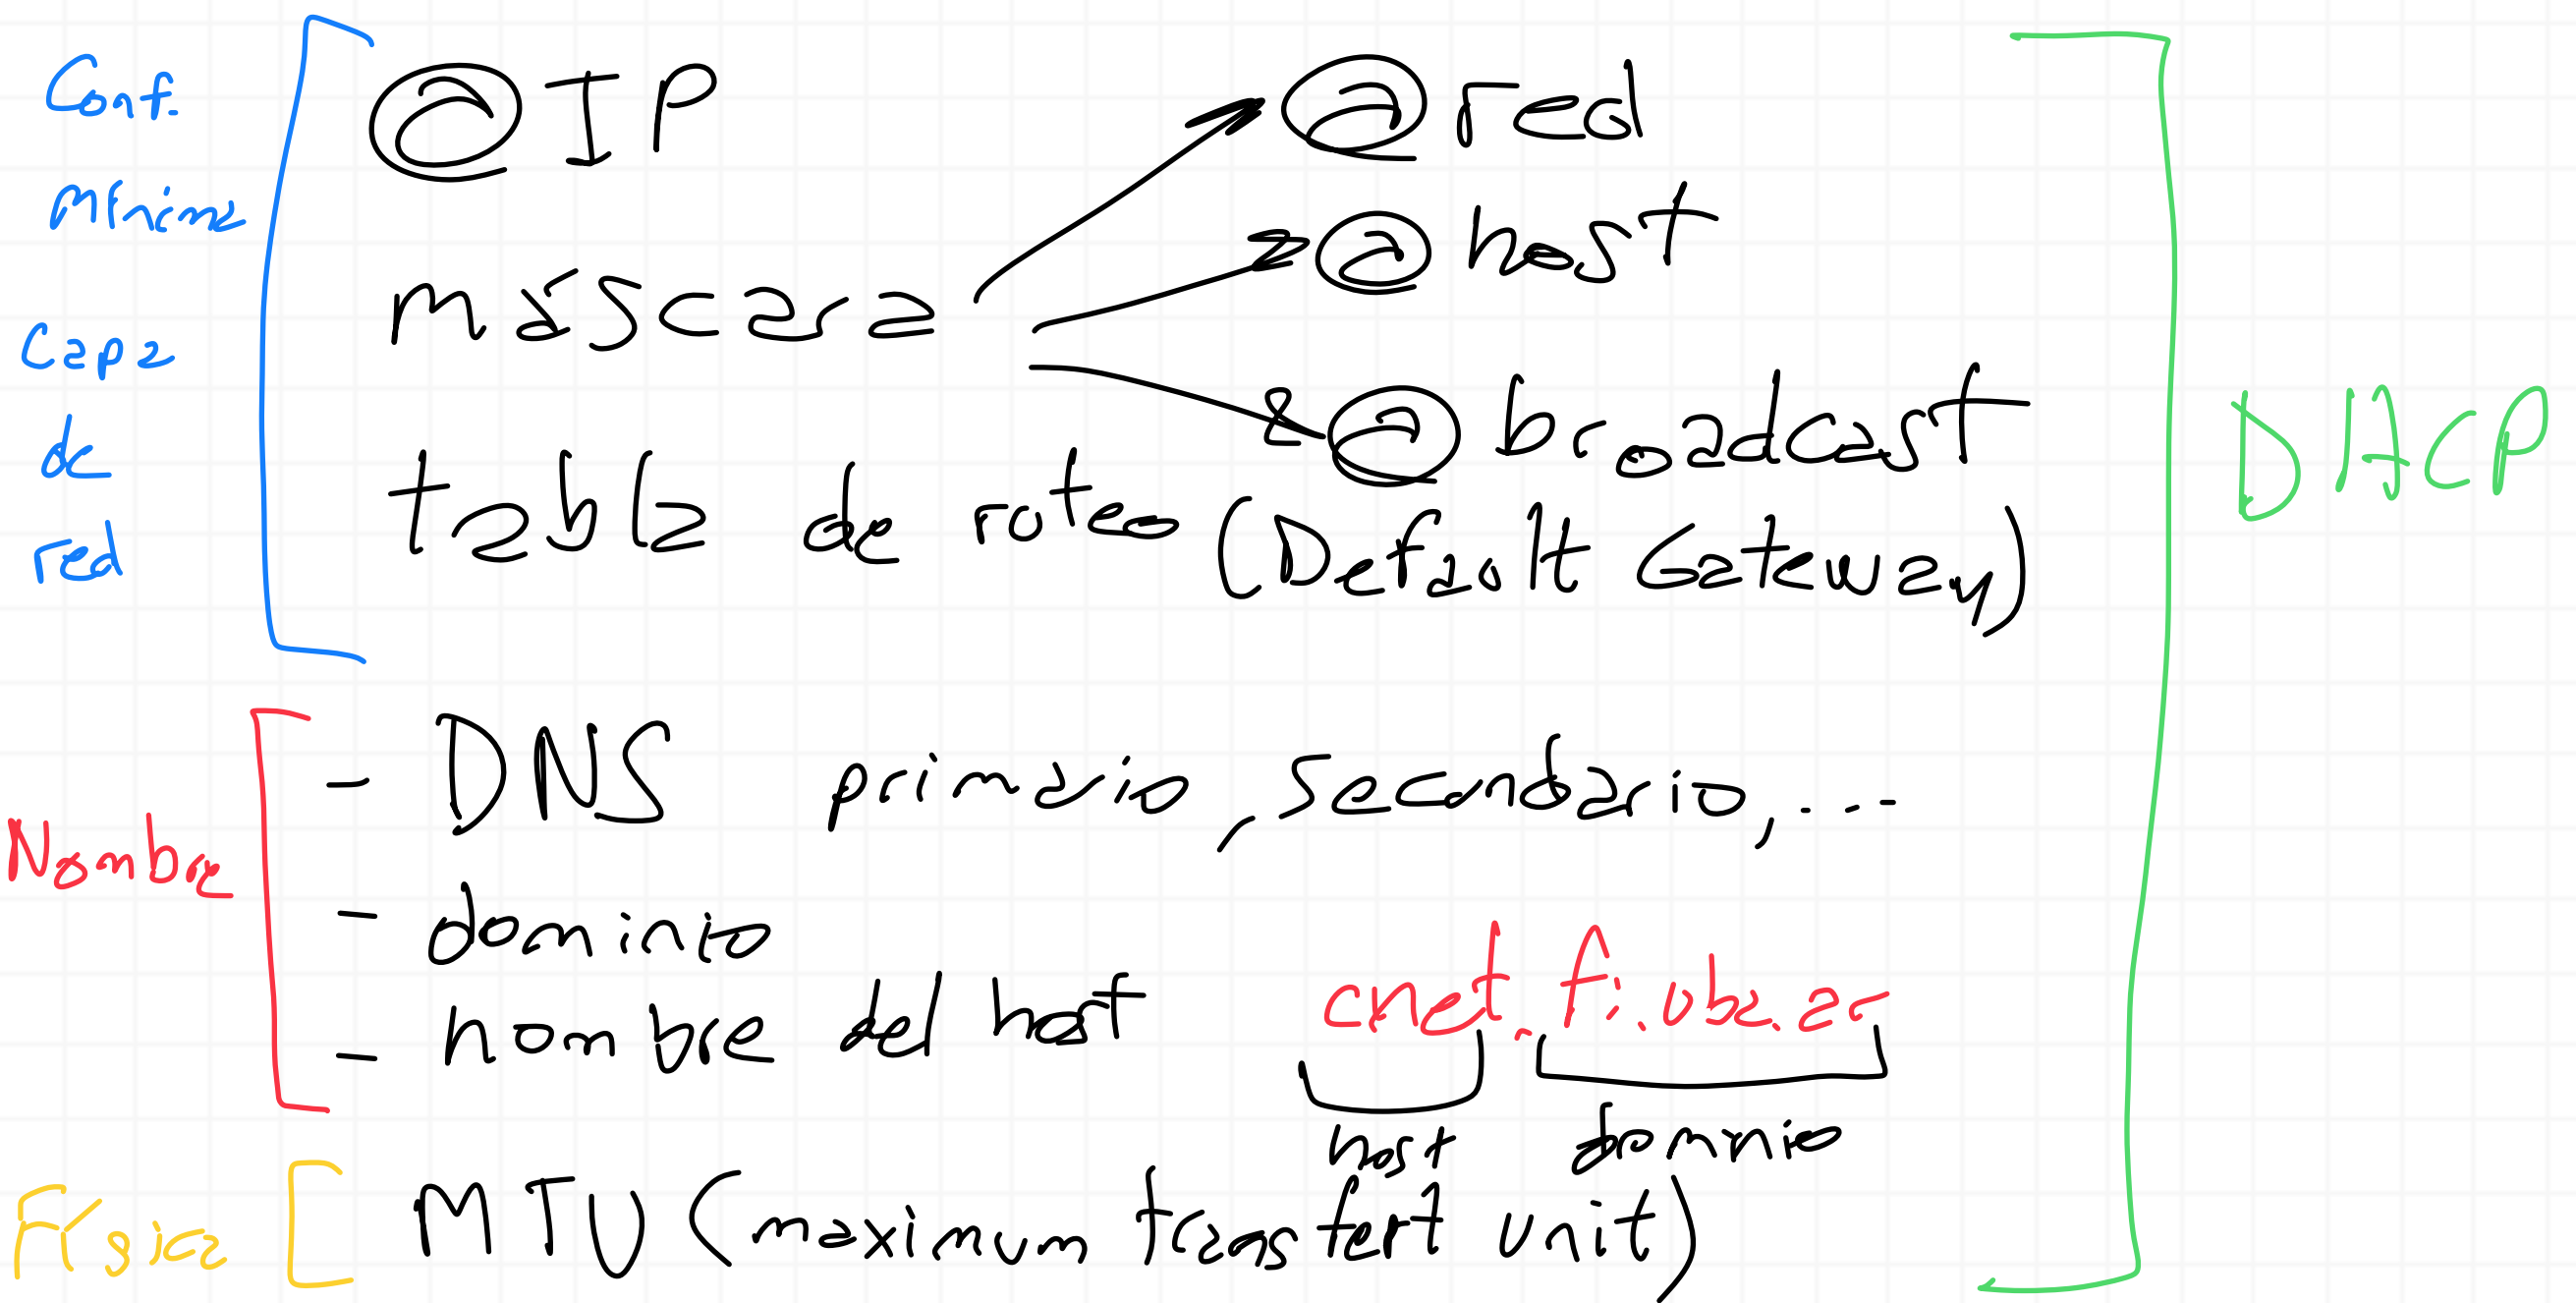 Conf.
Mínima
Capa
de
red
@ IP
máscara
@ red
@ host
@ broadcast
tabla de ruteo (Default Gateway)
DHCP
Nombre
- DNS primario, secundario, ...
- dominio
- nombre del host
cnet.fi.uba.ar
host dominio
Física
MTU (maximum transfert unit)